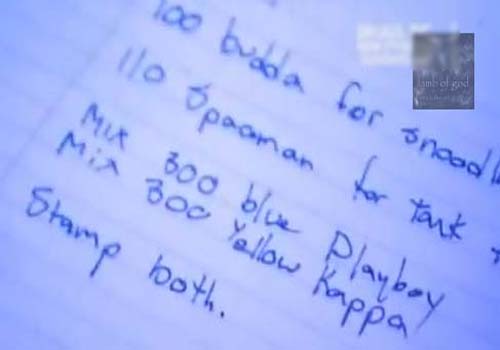 100 budda for snoodl
110 Spaaman for Tank
Mix 300 blue Playboy
Mix 300 Yellow Kappa
Stamp both.
lamb of god